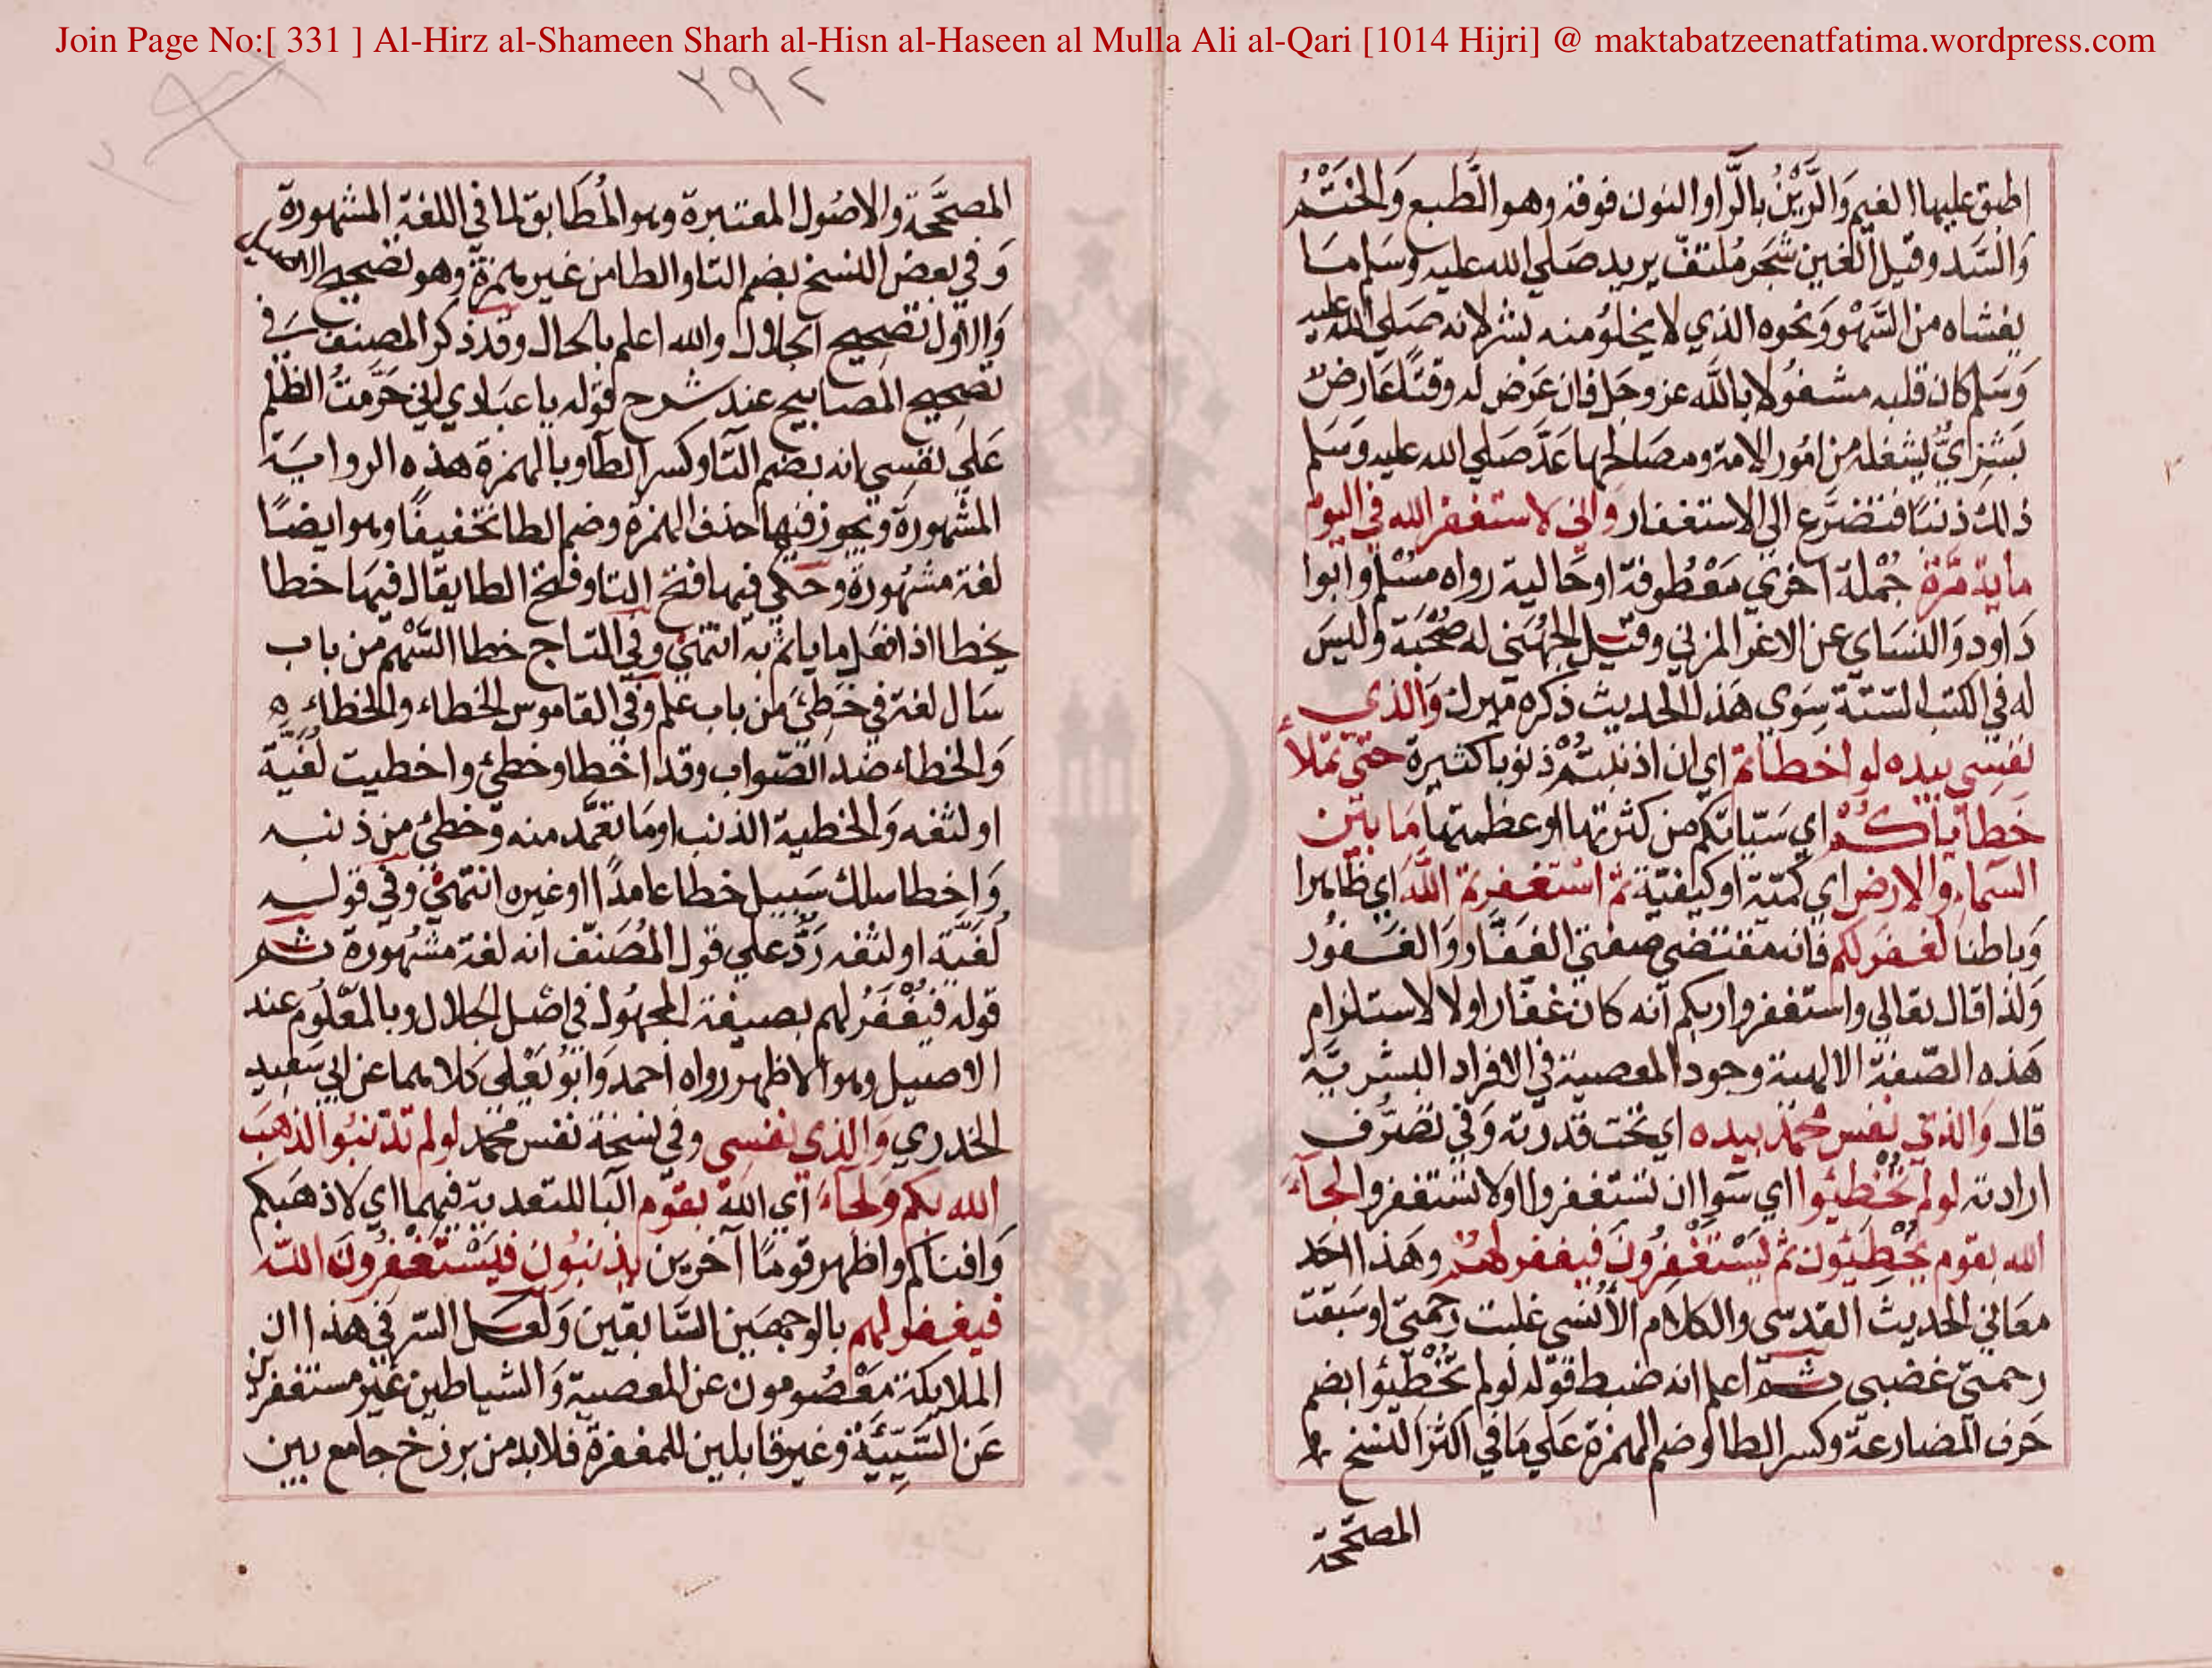 Join Page No:[ 331 ] Al-Hirz al-Shameen Sharh al-Hisn al-Haseen al Mulla Ali al-Qari [1014 Hijri] @ maktabatzeenatfatima.wordpress.com
٢٩٢
اطبق عليها الغيم وَالرَّيْنُ بالرَّاوالنون فوقه وهو الطَّبع وَالخَتْمُ
وَالسَّد وقيل الغين شَجَر مُلتفّ يريد صَلي الله عليه وسَلم مَا
يغشاه من السَّهْو وَنحوه الذي لا يخلوُ منه بشر لانه صَلي الله عليه
وَسَلم كان قلبه مشغُولا بالله عز وجل فان عَرَض له وقتًا عَارضٌ
بَشَرِيٌّ يشغله من امُور الامة ومصَالحها عَدَّ صَلي الله عليه وَسَلم
ذلك ذنبًا فتضرَّع الي الاستغفار واني لاستغفر الله في اليوم
ماية مَرّة جُمْلة اخري مَعْطُوفة او حَالية رواه مسْلم وابُوا
دَاود وَالنسَاي عن الاغر المزني وقيل الجُهَني له صُحْبَة وليسَ
له في الكتب الستّة سِوَي هَذا الحديث ذكره ميرك وَالذي
نفسِي بيده لو اخطاتم اي ان اذنبتمْ ذنوبا كثيرة حتي تملأ
خَطاياكُمْ اي سَيّاتكم من كثرتها او عظمتها مَا بَيْن
السّماءِ وَالارض اي كميّة او كيفيّة ثم استغفرتم اللهَ اي ظاهرا
وَباطنا لغفَر لكم فانه مقتضي صفتي الغفّار وَالغَفُور
وَلذا قال تعالي واستغفروا ربكم انه كان غفارا ولا لاستلزام
هَذه الصّفة الالهية وجود المعصية في الافراد البشريَّة
قال وَالذي نفس محمّد بيده اي تحت قدرته وَفي تصَرّف
ارادته لولم تُخْطِئوا اي سَواان تستغفروا اولا تستغفروا لجآءَ
الله بقوم يُخْطِئون ثم يَسْتَغْفِرُونَ فيغفر لهُمْ وهَذا احَد
معَاني الحديث القدسي والكلام الأُنْسي غلبت رَحمتي او سَبَقت
رحمتي غضبي ثمّ اعلم انه ضبط قوله لولم تُخْطِئوا بضم
حَرف المضارعة وكسر الطا وضم الهمزة عَلي مَا في اكثر النسخ
المصَحّحة
المصحَّحَة والاصُول المعتبرة وهو المُطابق لما في اللغة المشهورة
وَفي بعض النسخ بضم التا والطا من غير همزة وهو تصحيح
وَالاول تصْحيح الجلال والله اعلم بالحال وقد ذكر المصنف في
تصحِيح المصابيح عند شرح قوله يا عبَادي اني حَرَّمتُ الظلم
عَلي نفسِي انه بضم التا وكسر الطا وبالهمزة هذه الروايَة
المشهورة وَيجوز فيها حذف الهمزة وضم الطا تخفيفًا وهو ايضًا
لغة مشهُورة وحَكي فيها فتح التا وفتح الطا يقال فيها خطا
يخطا اذا فعل ما ياثم به انتهي وفي التاج خطا السَّهم من باب
سَال لغة في خَطِئ من باب علم وَفي القاموس الخطاء والخَطا
وَالخطاء ضد الصّواب وقد اخطا وخطئ واخطيت لُغَيّة
او لثغه وَالخطية الذنب او مَا تعَمّد منه وَخطئ من ذنبه
وَاخطا سلك سَبيل خطا عامدًا او غيره انتهي وَفي قوله
لُغَيَّة اولثغه رَدٌّ علي قول المُصَنّف انه لغة مشهُورة ثم
قوله فيُغْفَرُ لهم بصيغة المجهُول في اصْل الجَلال وبالمعْلُوم عند
الاصيل وهو الاظهر رواه احمد وَابُو يَعْلي كلاهما عن ابي سَعِيد
الخدري وَالذي نفسِي وفي نسَخة نفس محمد لو لم تذنبُوا لذهَبَ
الله بكم وَلجآءَ اي الله بقوْم البا للتعدية فيهما اي لاذهَبكم
وَافناكم واظهر قومًا آخرين يذنبُون فيَسْتَغْفِرُونَ الله
فيغفر لهم بالوجهَين السَّابقين وَلعَل السّر في هذا ان
الملايكة مَعْصُومون عن المعصية وَالشياطين غيْر مستغفرين
عَن السَّيِّيَة وغير قابلين للمغفرة فلابد من برزخ جامع بين